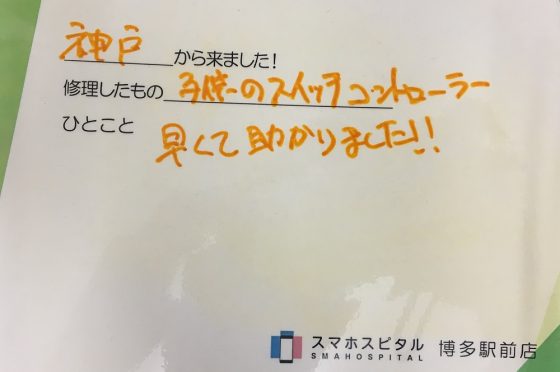 神戸から来ました！
修理したもの 子供のスイッチコントローラー
ひとこと 早くて助かりました!!
スマホスピタル 博多駅前店
SMAHOSPITAL